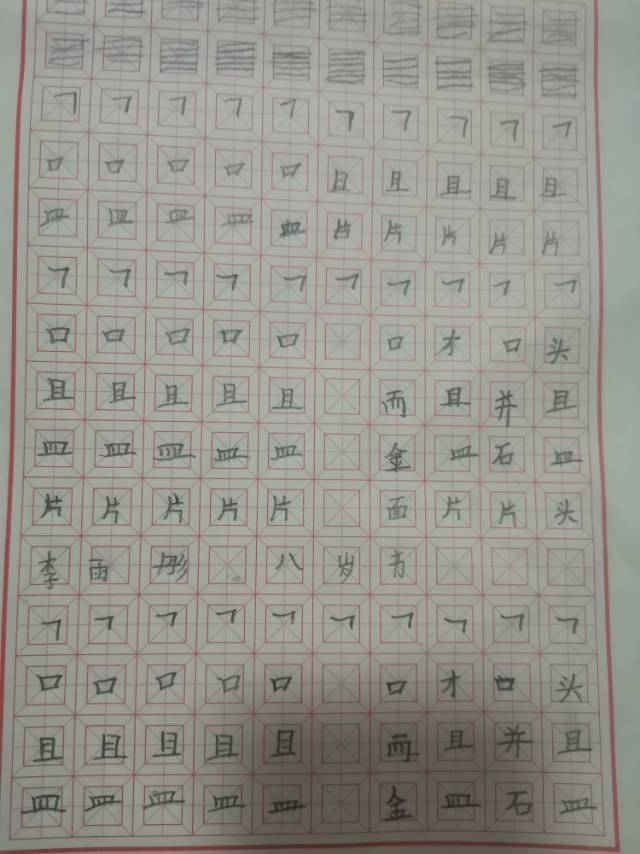 𠃍 𠃍 𠃍 𠃍 𠃍 𠃍 𠃍 𠃍 𠃍 𠃍
口 口 口 口 口 且 且 且 且 且
皿 皿 皿 皿 皿 片 片 片 片 片
𠃍 𠃍 𠃍 𠃍 𠃍 𠃍 𠃍 𠃍 𠃍 𠃍
口 口 口 口 口 口 才 口 头
且 且 且 且 且 而 且 并 且
皿 皿 皿 皿 皿 金 皿 石 皿
片 片 片 片 片 面 片 片 头
李 雨 彤 。 八 岁 半
𠃍 𠃍 𠃍 𠃍 𠃍 𠃍 𠃍 𠃍 𠃍 𠃍
口 口 口 口 口 口 才 口 头
且 且 且 且 且 而 且 并 且
皿 皿 皿 皿 皿 金 皿 石 皿